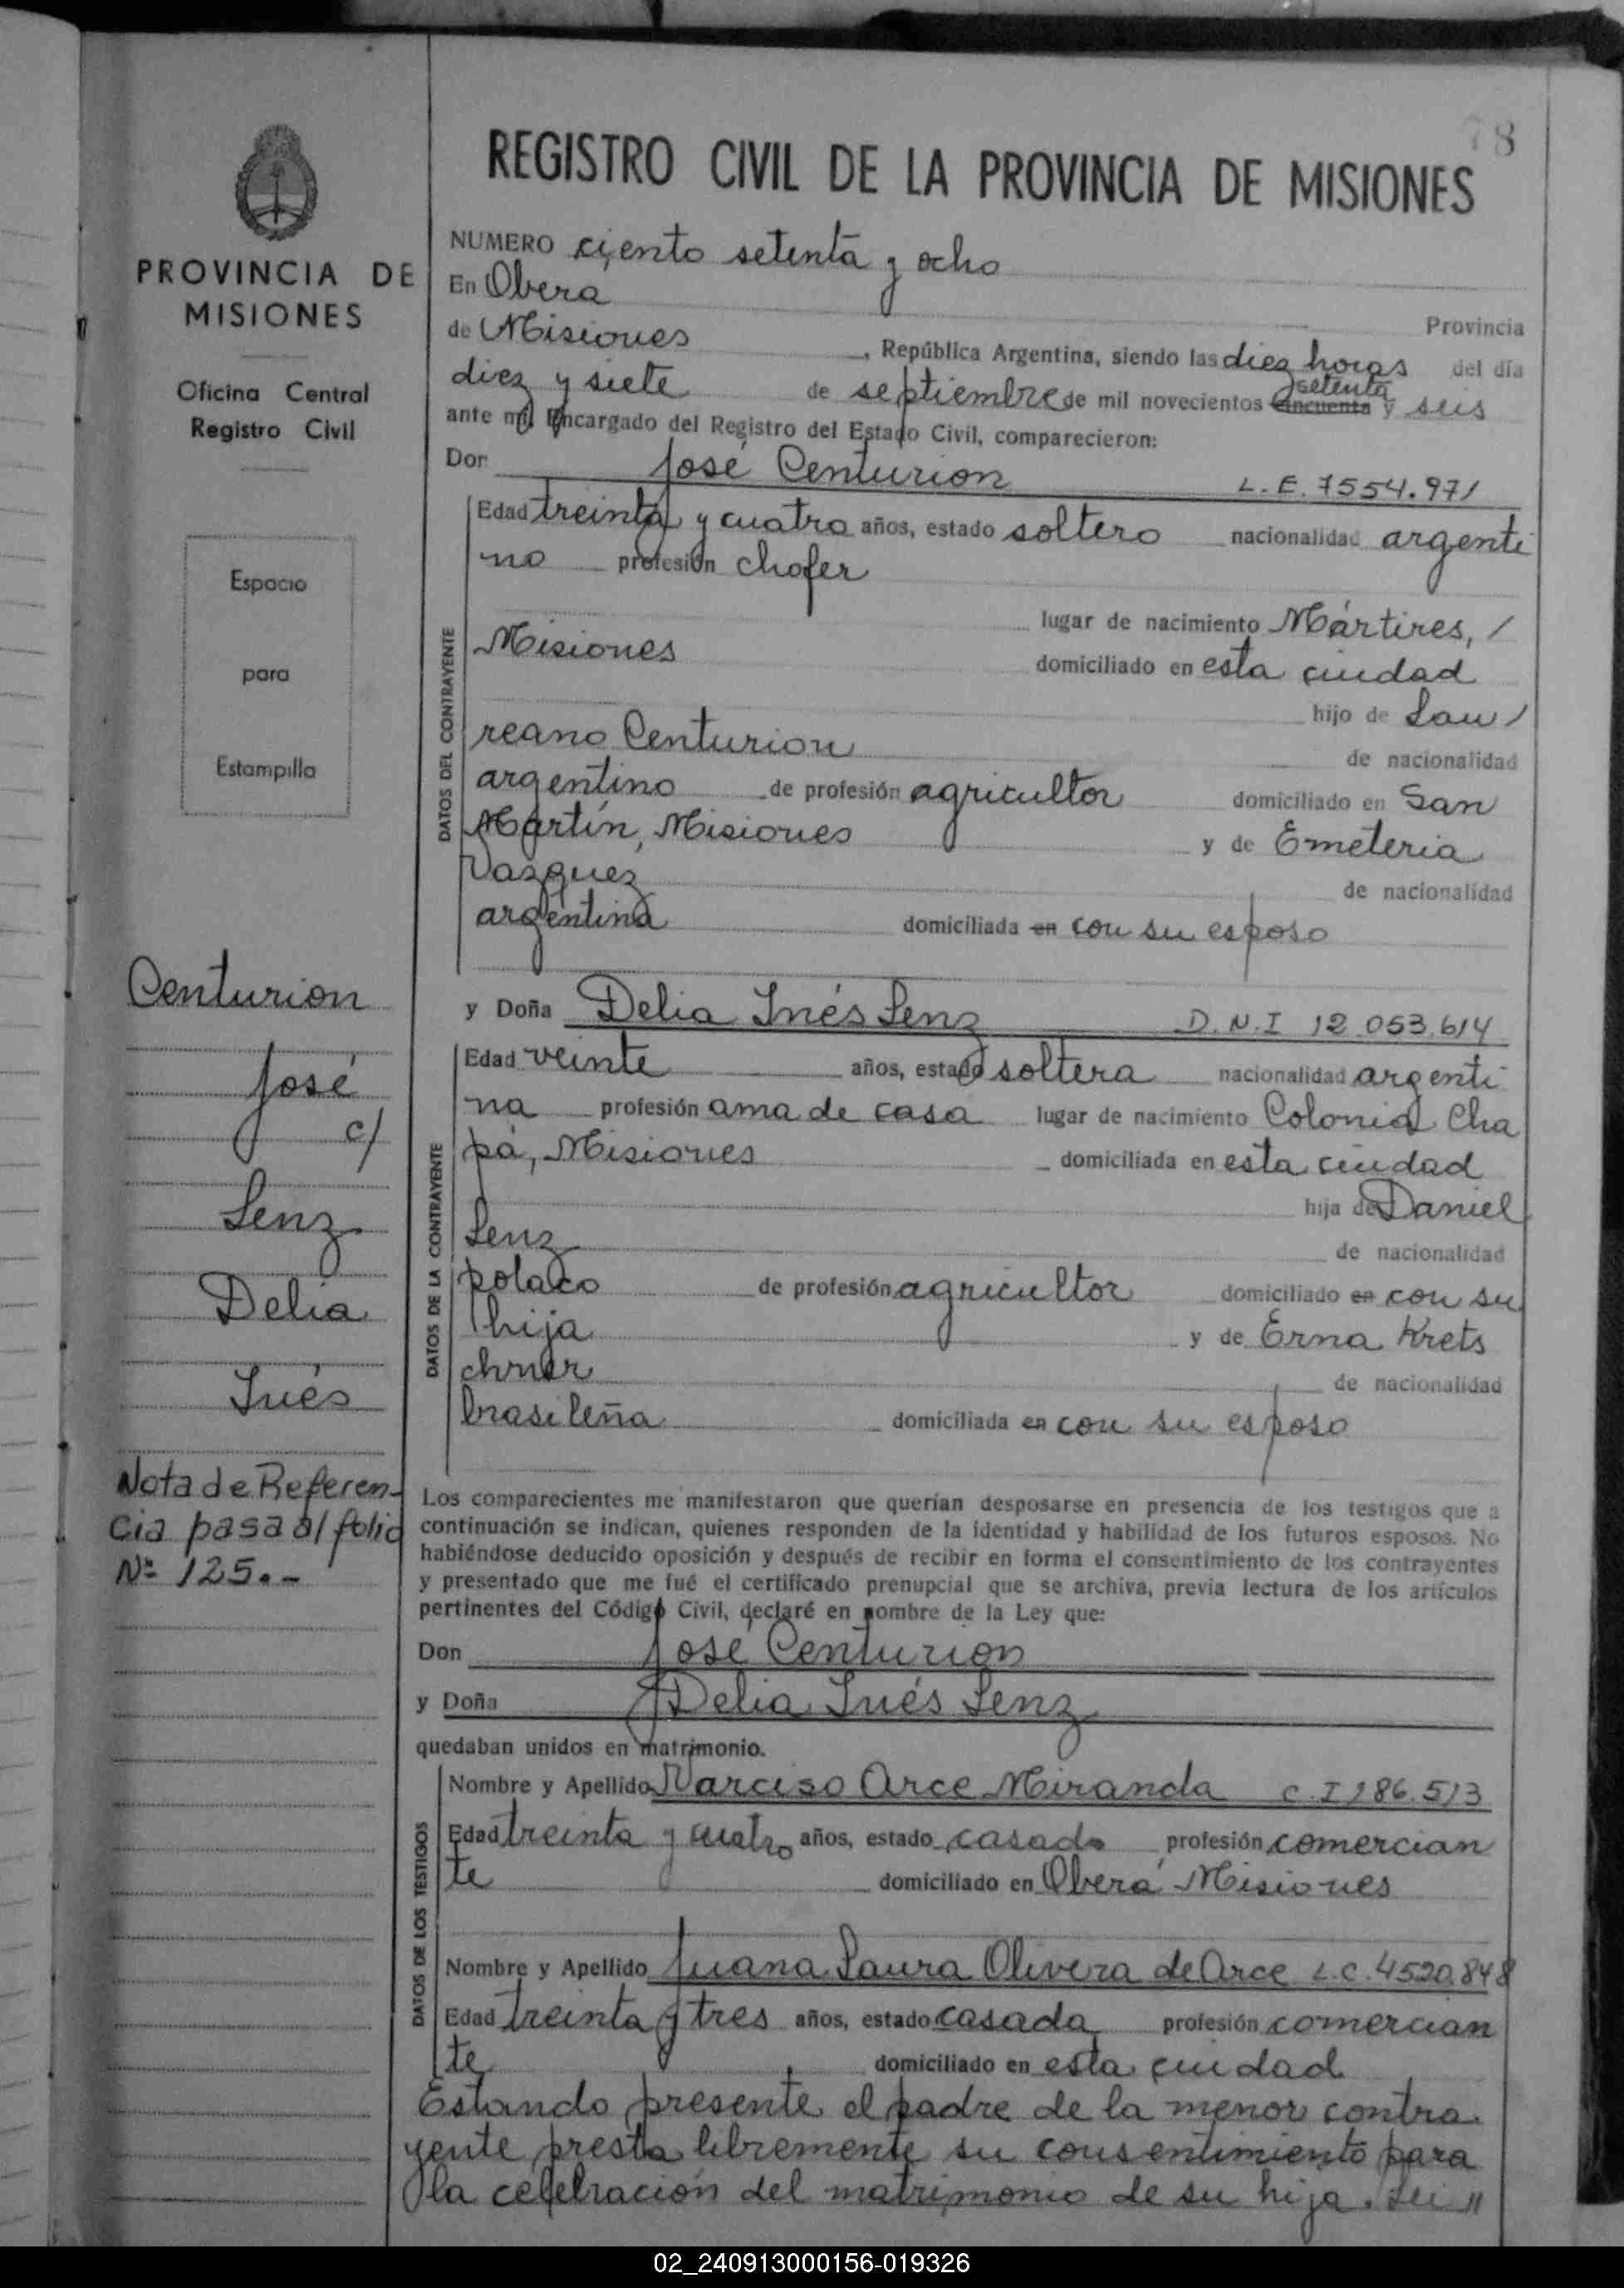 78
REGISTRO CIVIL DE LA PROVINCIA DE MISIONES
PROVINCIA DE
MISIONES
Oficina Central
Registro Civil
Espacio
para
Estampilla
Centurion
José
c/
Lenz
Delia
Inés
Nota de Referen-
cia pasa al folio
Nº 125.-
NUMERO ciento setenta y ocho
En Obera
Provincia
de Misiones, República Argentina, siendo las diez horas del día
diez y siete de septiembre de mil novecientos cincuenta setenta y seis
ante mi, Encargado del Registro del Estado Civil, comparecieron:
Don José Centurion L.E. 7554.971
DATOS DEL CONTRAYENTE
Edad treinta y cuatro años, estado soltero nacionalidad argenti
no profesión chofer
lugar de nacimiento Mártires, /
Misiones domiciliado en esta ciudad
hijo de Lau/
reano Centurion de nacionalidad
argentino de profesión agricultor domiciliado en San
Martín, Misiones y de Emeteria
Vazquez de nacionalidad
argentina domiciliada en con su esposo
y Doña Delia Inés Lenz D.N.I 12.053.614
DATOS DE LA CONTRAYENTE
Edad veinte años, estado soltera nacionalidad argenti
na profesión ama de casa lugar de nacimiento Colonia Cha
pá, Misiones domiciliada en esta ciudad
hija de Daniel
Lenz de nacionalidad
polaco de profesión agricultor domiciliado en con su
hija y de Erna Krets
chner de nacionalidad
brasileña domiciliada en con su esposo
Los comparecientes me manifestaron que querían desposarse en presencia de los testigos que a
continuación se indican, quienes responden de la identidad y habilidad de los futuros esposos. No
habiéndose deducido oposición y después de recibir en forma el consentimiento de los contrayentes
y presentado que me fué el certificado prenupcial que se archiva, previa lectura de los artículos
pertinentes del Código Civil, declaré en nombre de la Ley que:
Don José Centurion
y Doña Delia Inés Lenz
quedaban unidos en matrimonio.
DATOS DE LOS TESTIGOS
Nombre y Apellido Narciso Arce Miranda C.I 186.513
Edad treinta y cuatro años, estado casado profesión comercian
te domiciliado en Oberá Misiones
Nombre y Apellido Juana Laura Olivera de Arce L.C. 4520.848
Edad treinta y tres años, estado casada profesión comercian
te domiciliado en esta ciudad
Estando presente el padre de la menor contra
yente presta libremente su consentimiento para
la celebración del matrimonio de su hija. Lei "
02_240913000156-019326